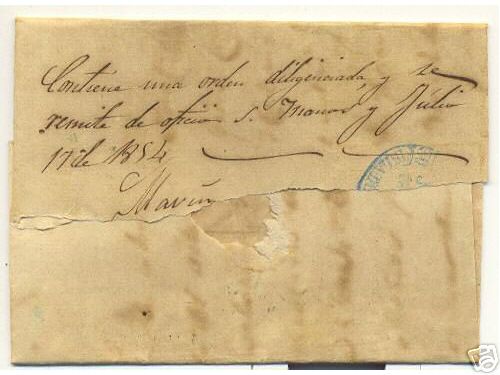 Contiene una orden diligenciada, y se
remite de oficio S. Manrr y Júlio
17 de 1854
Marin
ebay